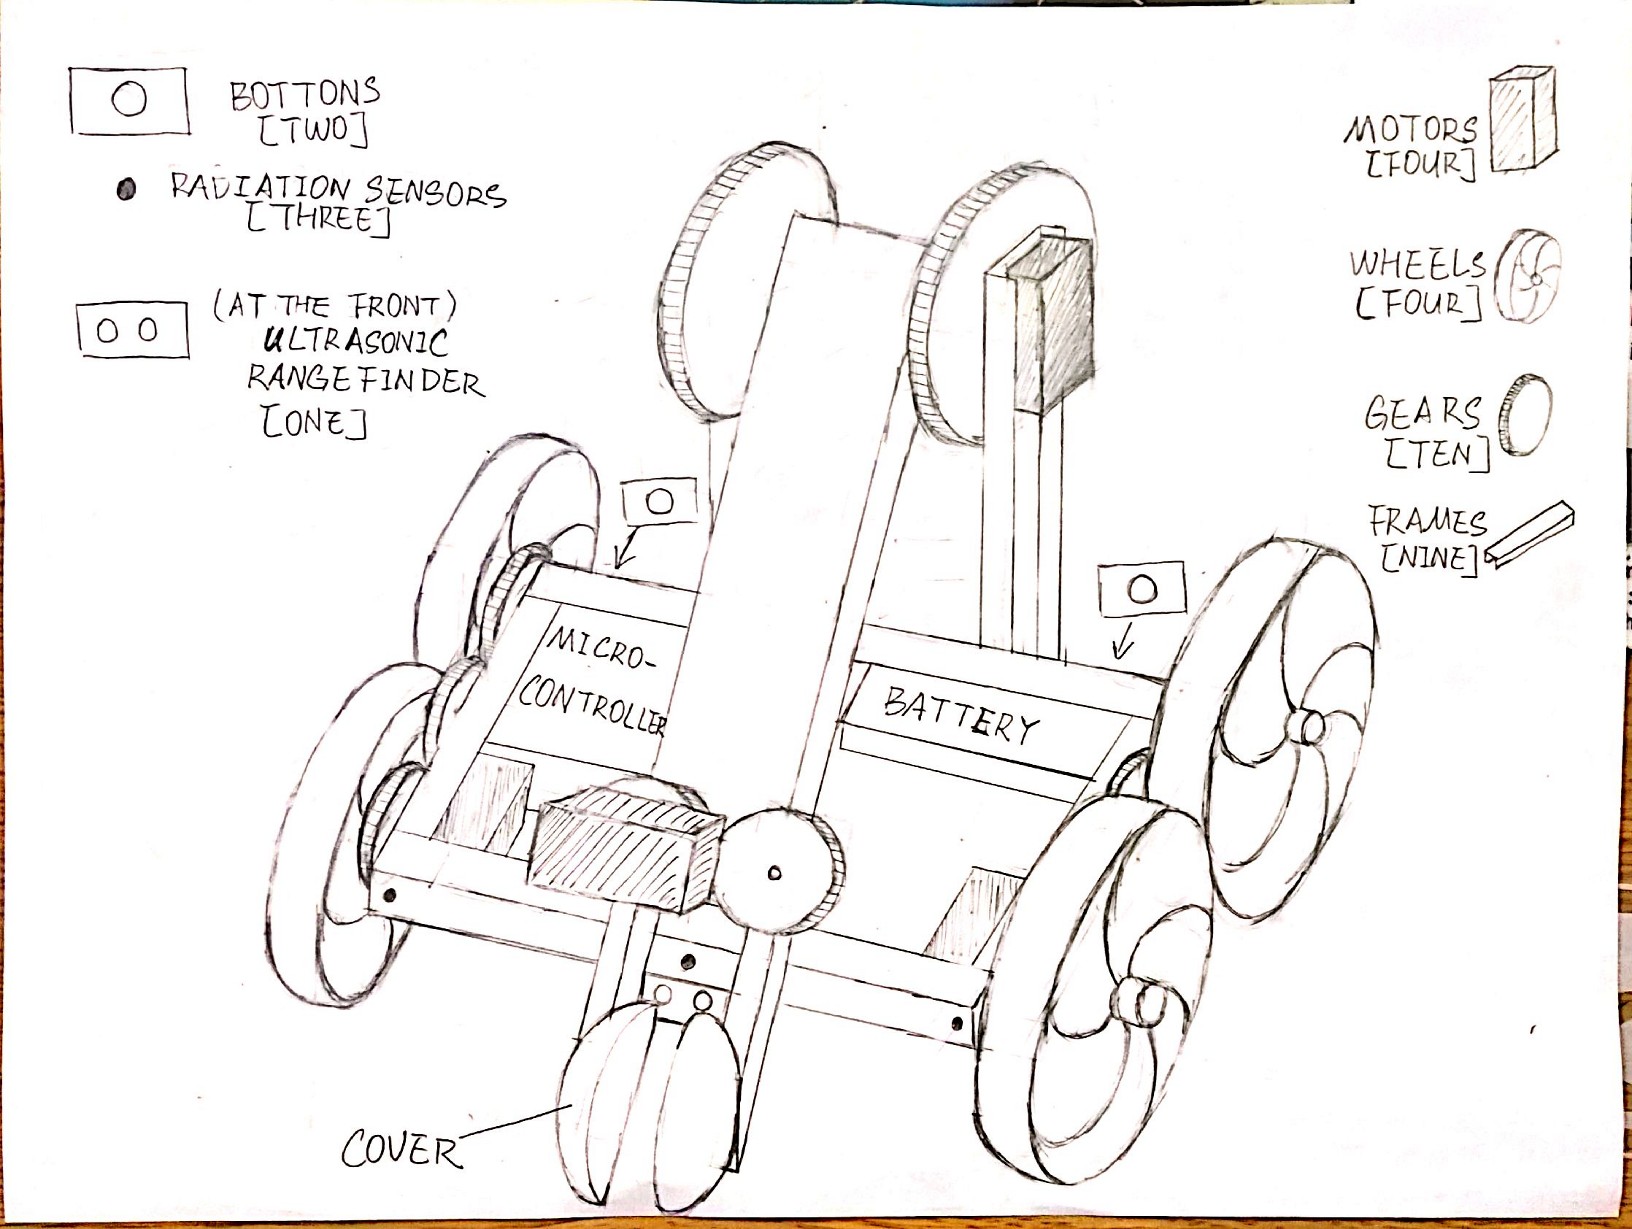 BOTTONS
[TWO]
RADIATION SENSORS
[THREE]
(AT THE FRONT)
ULTRASONIC
RANGEFINDER
[ONE]
MOTORS
[FOUR]
WHEELS
[FOUR]
GEARS
[TEN]
FRAMES
[NINE]
MICRO-
CONTROLLER
BATTERY
COVER